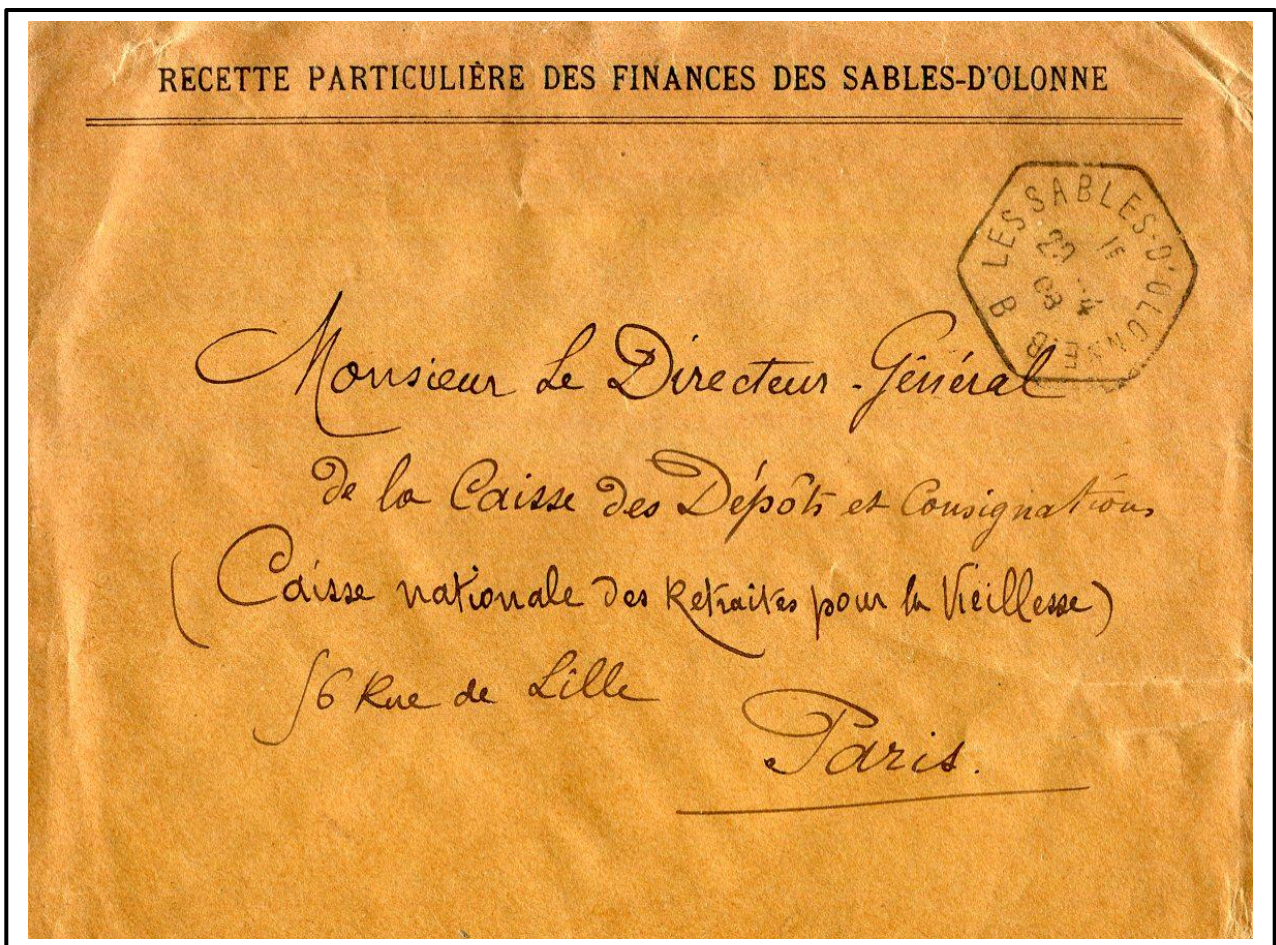 RECETTE PARTICULIÈRE DES FINANCES DES SABLES-D'OLONNE
B LES SABLES-D'OLONNE B
Monsieur Le Directeur-Général
de la Caisse des Dépôts et Consignations
(Caisse nationale des Retraites pour la Vieillesse)
56 Rue de Lille
Paris.